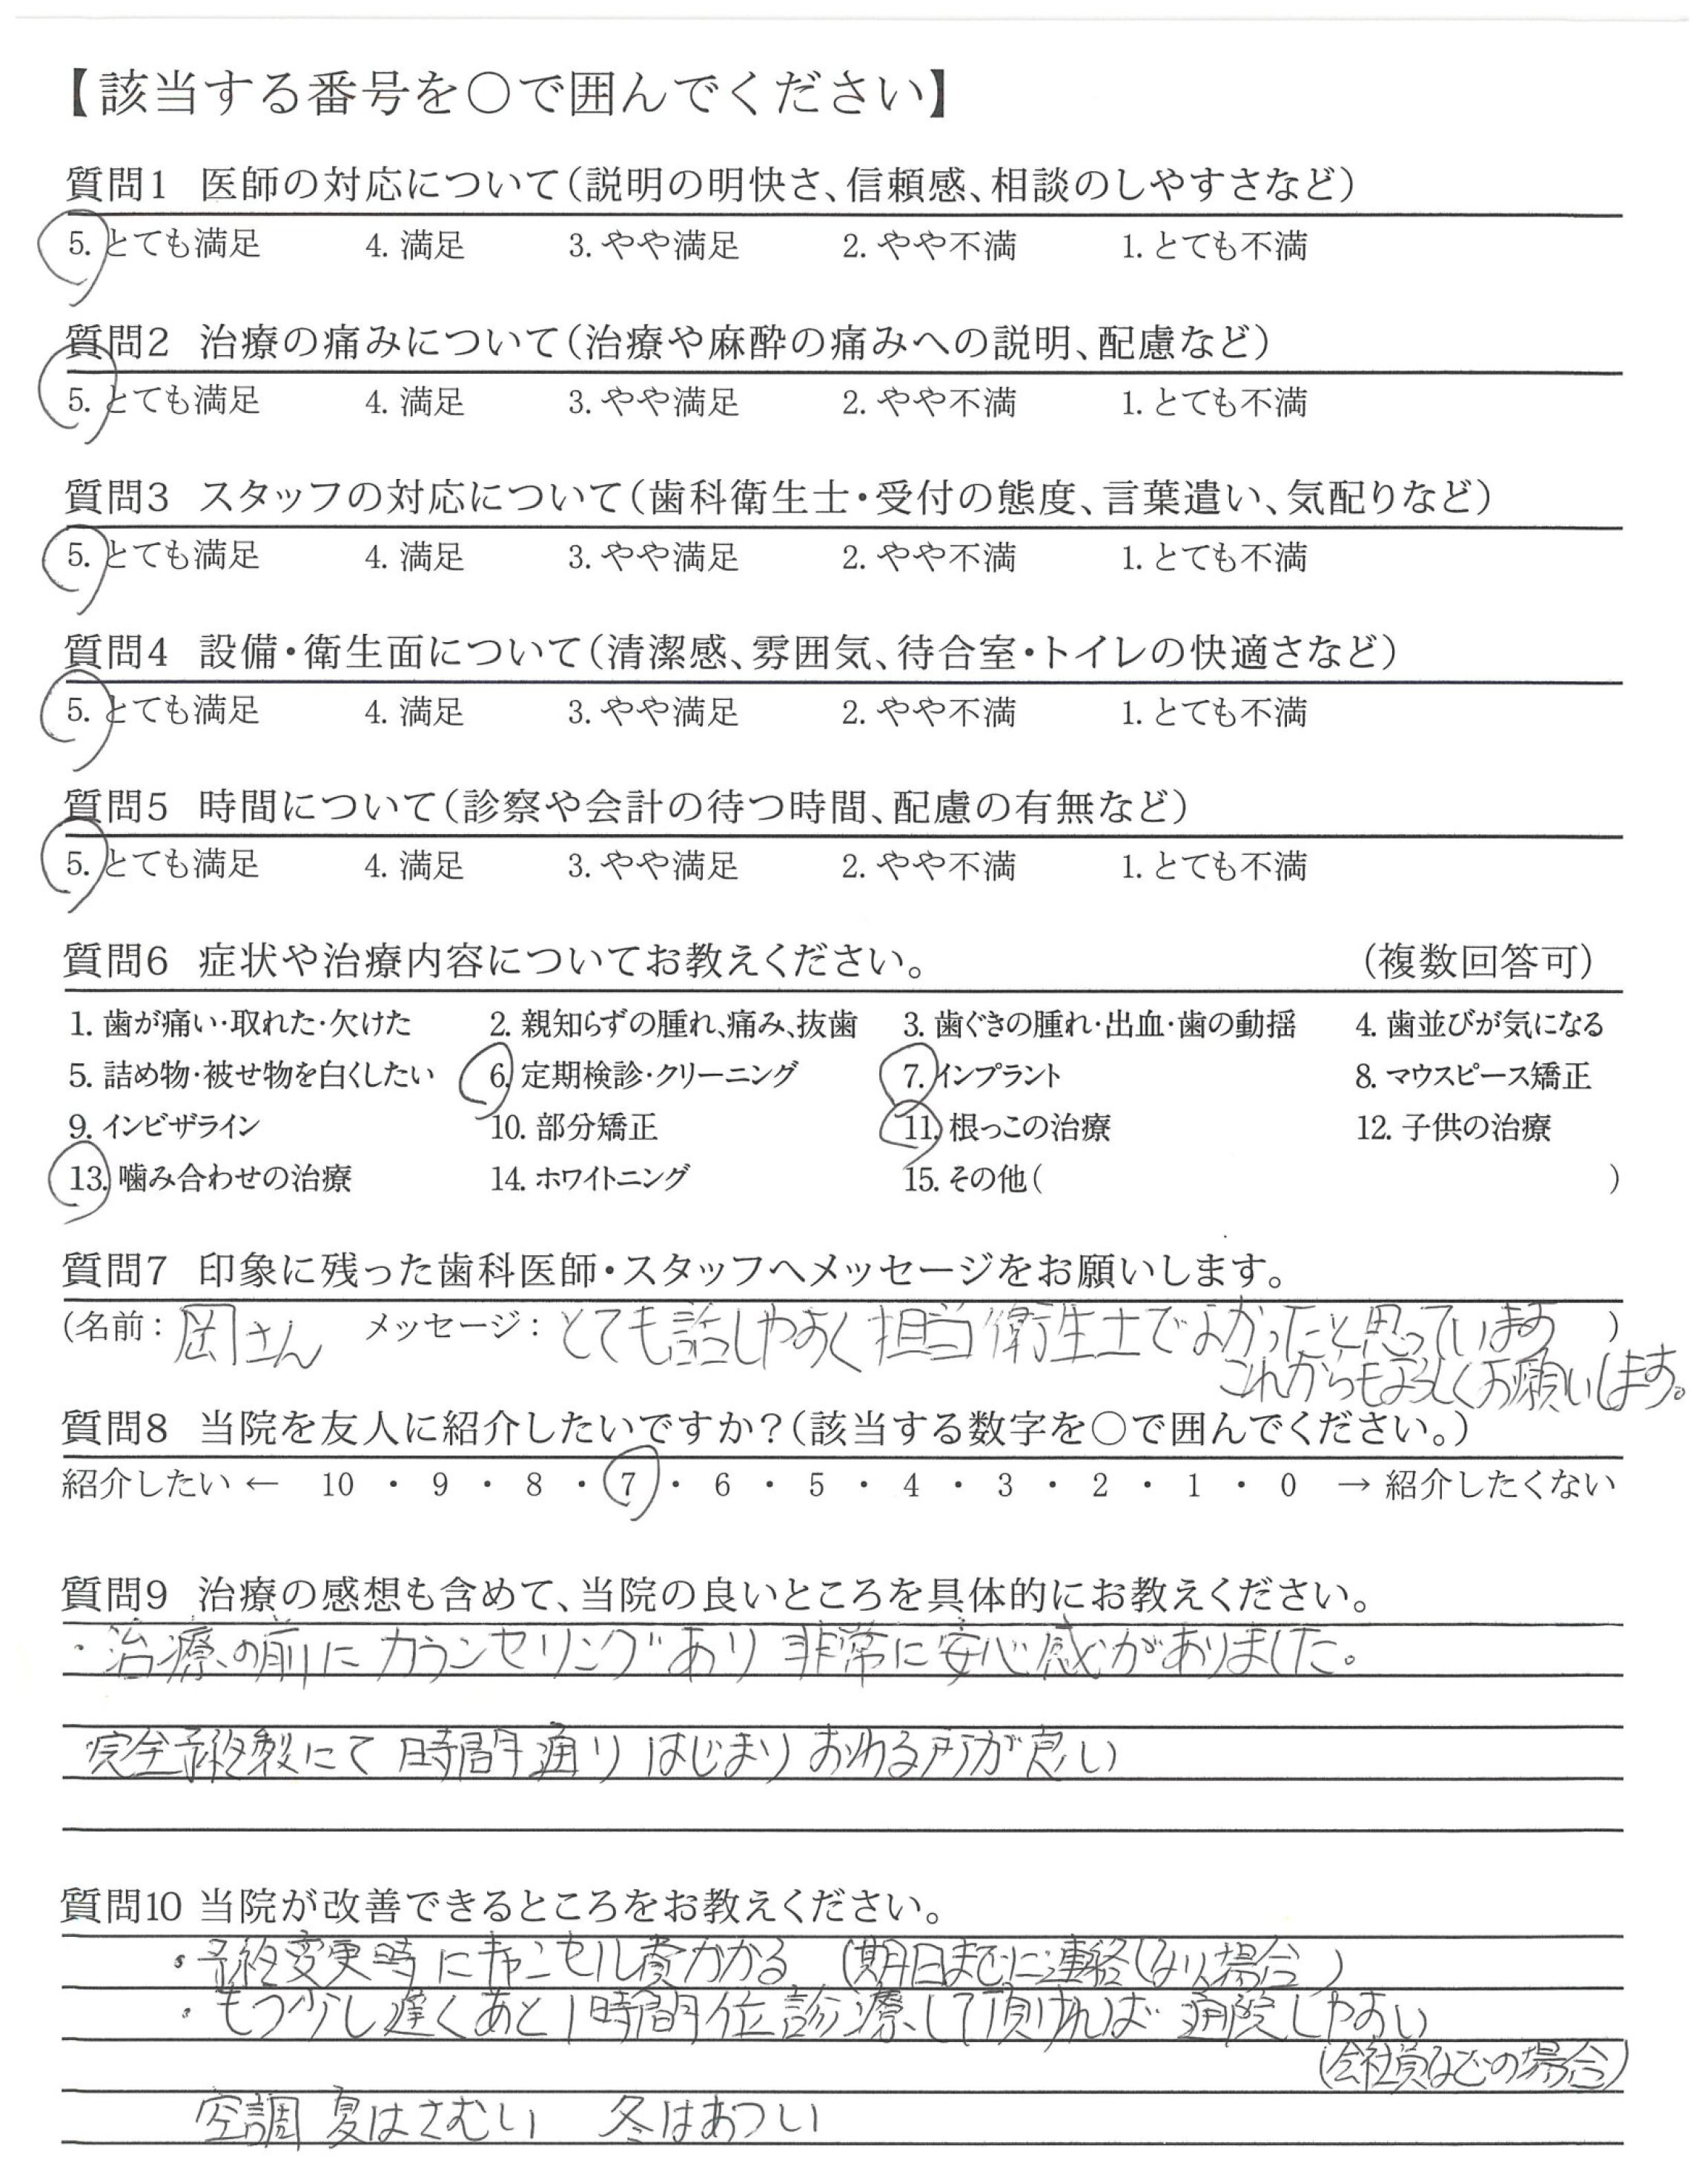 【該当する番号を○で囲んでください】
質問1 医師の対応について(説明の明快さ、信頼感、相談のしやすさなど)
5. とても満足 4. 満足 3. やや満足 2. やや不満 1. とても不満
質問2 治療の痛みについて(治療や麻酔の痛みへの説明、配慮など)
5. とても満足 4. 満足 3. やや満足 2. やや不満 1. とても不満
質問3 スタッフの対応について(歯科衛生士・受付の態度、言葉遣い、気配りなど)
5. とても満足 4. 満足 3. やや満足 2. やや不満 1. とても不満
質問4 設備・衛生面について(清潔感、雰囲気、待合室・トイレの快適さなど)
5. とても満足 4. 満足 3. やや満足 2. やや不満 1. とても不満
質問5 時間について(診察や会計の待つ時間、配慮の有無など)
5. とても満足 4. 満足 3. やや満足 2. やや不満 1. とても不満
質問6 症状や治療内容についてお教えください。 (複数回答可)
1. 歯が痛い・取れた・欠けた 2. 親知らずの腫れ、痛み、抜歯 3. 歯ぐきの腫れ・出血・歯の動揺 4. 歯並びが気になる
5. 詰め物・被せ物を白くしたい 6. 定期検診・クリーニング 7. インプラント 8. マウスピース矯正
9. インビザライン 10. 部分矯正 11. 根っこの治療 12. 子供の治療
13. 噛み合わせの治療 14. ホワイトニング 15. その他( )
質問7 印象に残った歯科医師・スタッフへメッセージをお願いします。
(名前: 岡さん メッセージ: とても話しやすく担当衛生士でよかったと思っています )
これからもよろしくお願いします。
質問8 当院を友人に紹介したいですか?(該当する数字を○で囲んでください。)
紹介したい ← 10 ・ 9 ・ 8 ・ 7 ・ 6 ・ 5 ・ 4 ・ 3 ・ 2 ・ 1 ・ 0 → 紹介したくない
質問9 治療の感想も含めて、当院の良いところを具体的にお教えください。
・治療の前にカウンセリングあり 非常に安心感がありました。
・完全予約制にて 時間通り はじまり おわる所が良い
質問10 当院が改善できるところをお教えください。
・予約変更時にキャンセル費かかる (期日までに連絡しない場合)
・もう少し遅くあと1時間位診療して頂ければ 通院しやすい
(会社員などの場合)
空調 夏はさむい 冬はあつい